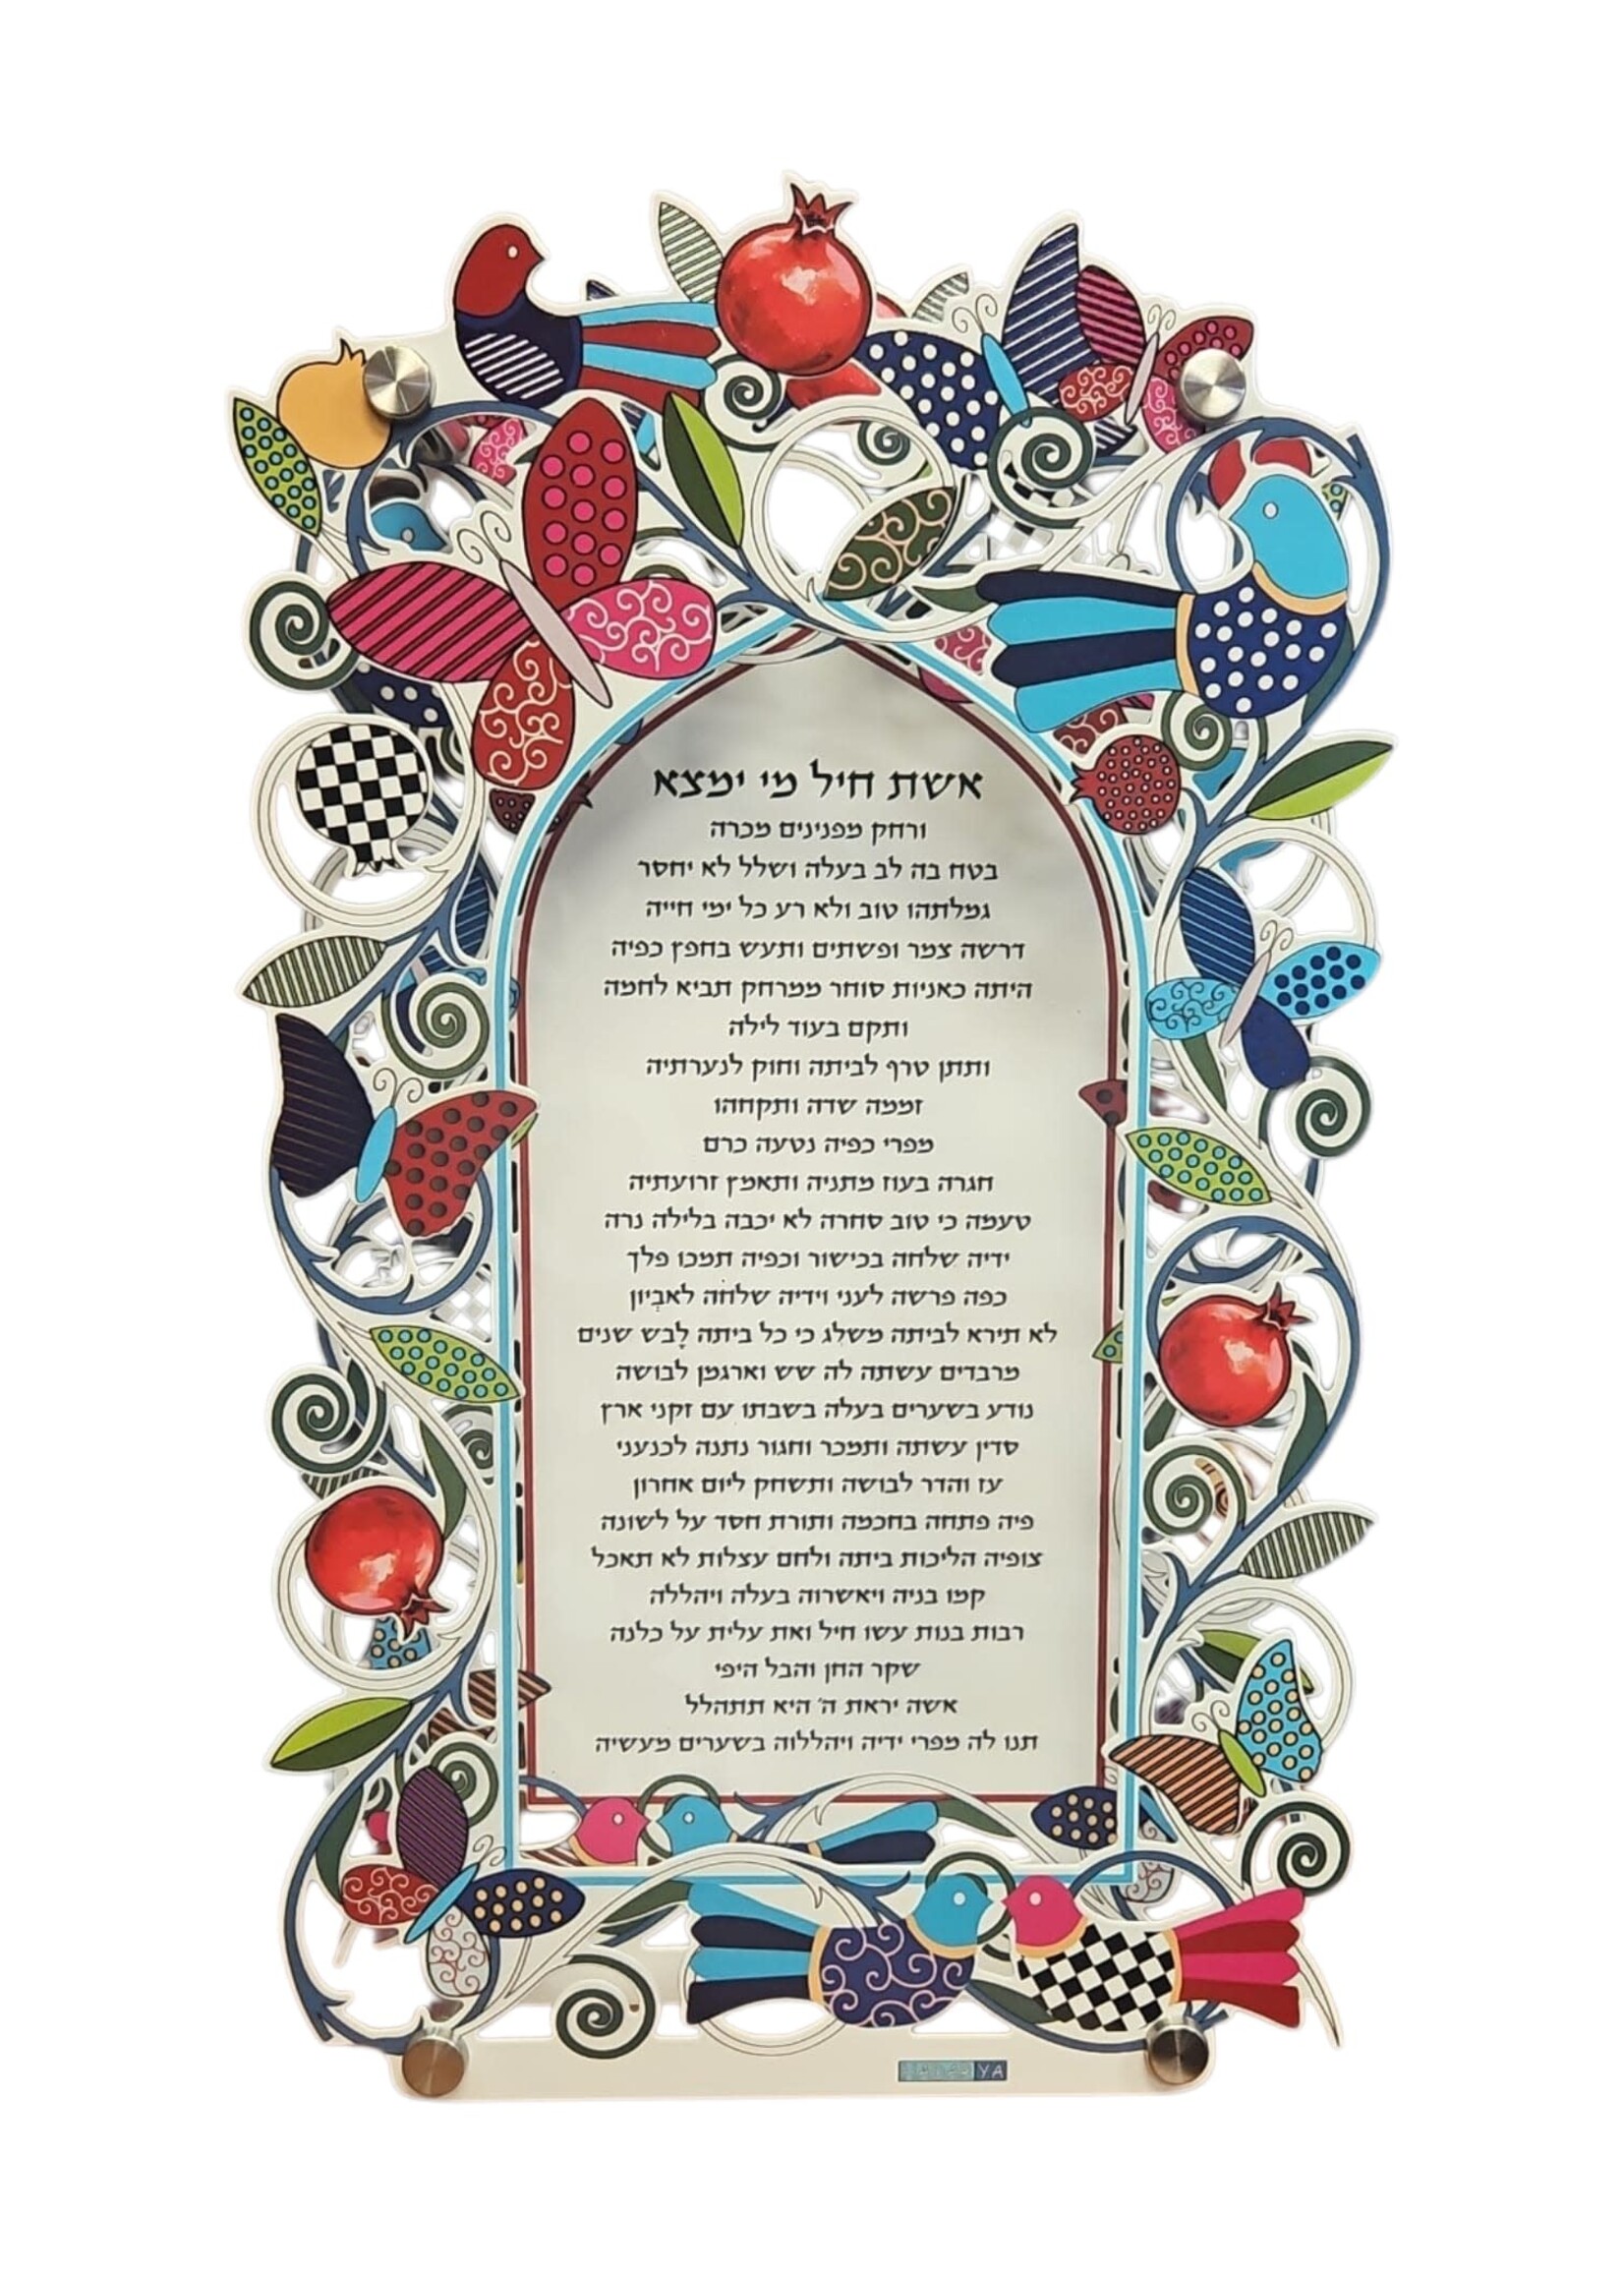 אשת חיל מי ימצא
ורחק מפנינים מכרה
בטח בה לב בעלה ושלל לא יחסר
גמלתהו טוב ולא רע כל ימי חייה
דרשה צמר ופשתים ותעש בחפץ כפיה
היתה כאניות סוחר ממרחק תביא לחמה
ותקם בעוד לילה
ותתן טרף לביתה וחוק לנערתיה
זממה שדה ותקחהו
מפרי כפיה נטעה כרם
חגרה בעוז מתניה ותאמץ זרועתיה
טעמה כי טוב סחרה לא יכבה בלילה נרה
ידיה שלחה בכישור וכפיה תמכו פלך
כפה פרשה לעני וידיה שלחה לאביון
לא תירא לביתה משלג כי כל ביתה לָבש שנים
מרבדים עשתה לה שש וארגמן לבושה
נודע בשערים בעלה בשבתו עם זקני ארץ
סדין עשתה ותמכר וחגור נתנה לכנעני
עז והדר לבושה ותשחק ליום אחרון
פיה פתחה בחכמה ותורת חסד על לשונה
צופיה הליכות ביתה ולחם עצלות לא תאכל
קמו בניה ויאשרוה בעלה ויהללה
רבות בנות עשו חיל ואת עלית על כלנה
שקר החן והבל היפי
אשה יראת ה' היא תתהלל
תנו לה מפרי ידיה ויהללוה בשערים מעשיה
YA